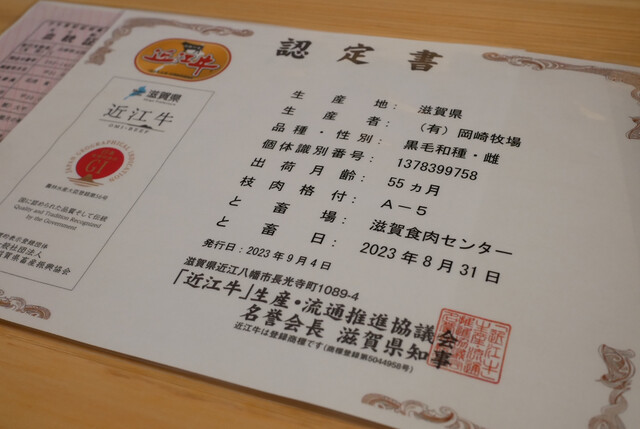 近江牛
認定書
滋賀県
近江牛
OMI-BEEF
JAPAN GEOGRAPHICAL INDICATION
GI
国に認められた品質そして伝統
Quality and Tradition Recognized
by the Government
生産地: 滋賀県
生産者: (有)岡崎牧場
品種・性別: 黒毛和種・雌
個体識別番号: 1378399758
出荷月齢: 55ヵ月
枝肉格付: A-5
と畜場: 滋賀食肉センター
と畜日: 2023年8月31日
発行日:2023年9月4日
滋賀県近江八幡市長光寺町1089-4
「近江牛」生産・流通推進協議会
名誉会長 滋賀県知事
近江牛は登録商標です(商標登録第5044958号)